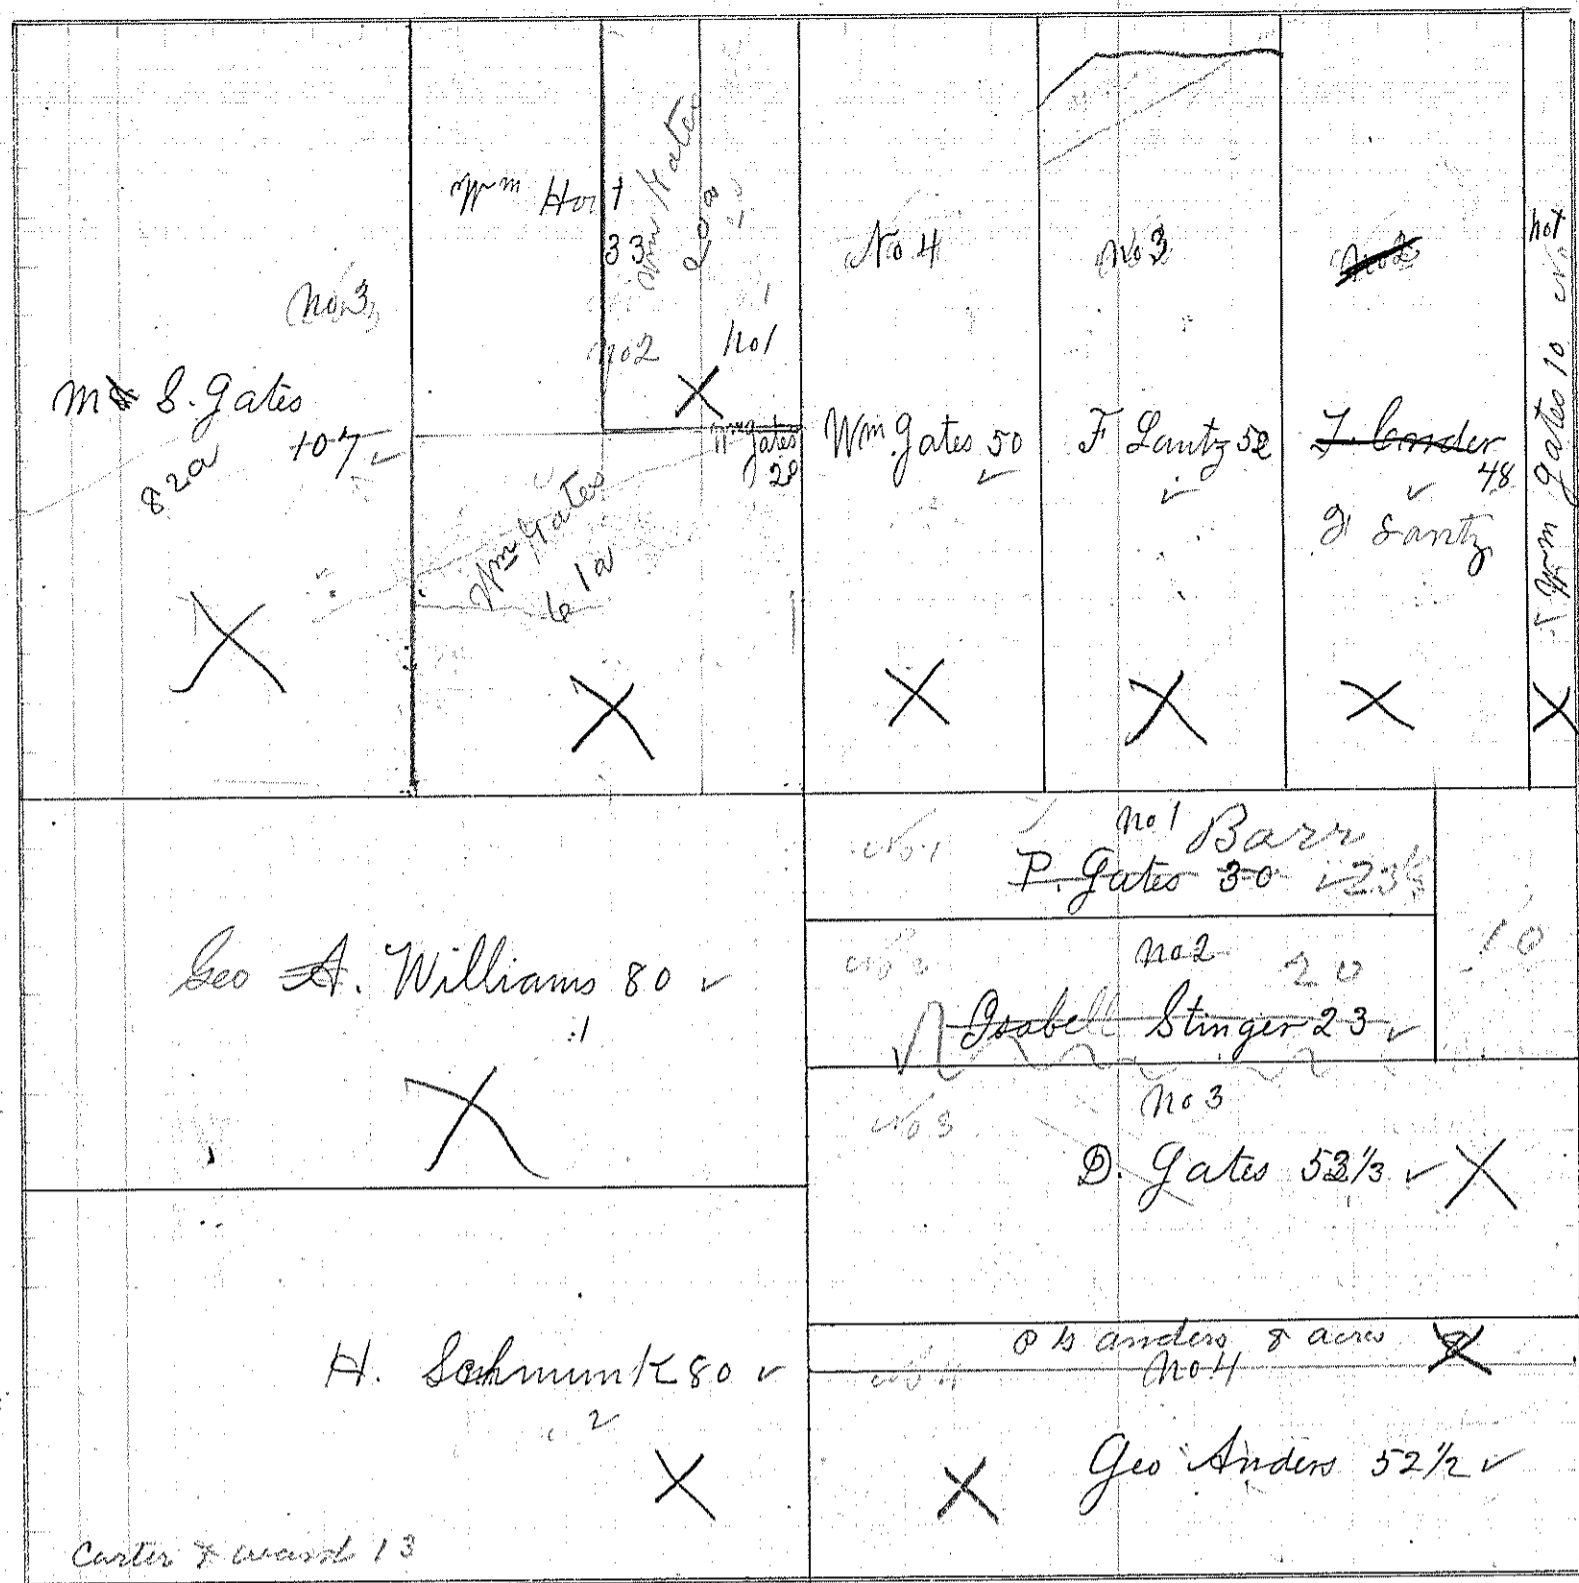 No 3
M S. Gates
107
82a
Wm Hort
33
Wm Gates
20a
No 2
No 1
Wm Gates
20
Wm Gates
61a
No 4
Wm. Gates 50
No 3
F Lantz 52
No 2
48
F Lantz
Wm Gates 10
hot
Geo A. Williams 80
1
H. Schmunk 80
2
Carter & Ward 13
No 1
No 1 Barr
P. Gates 30 23
No 2
No 2
20
Isabell Stinger 23
10
No 3
No 3
D. Gates 53 1/3
anders 8 acres
No 4
No 4
Geo Anders 52 1/2